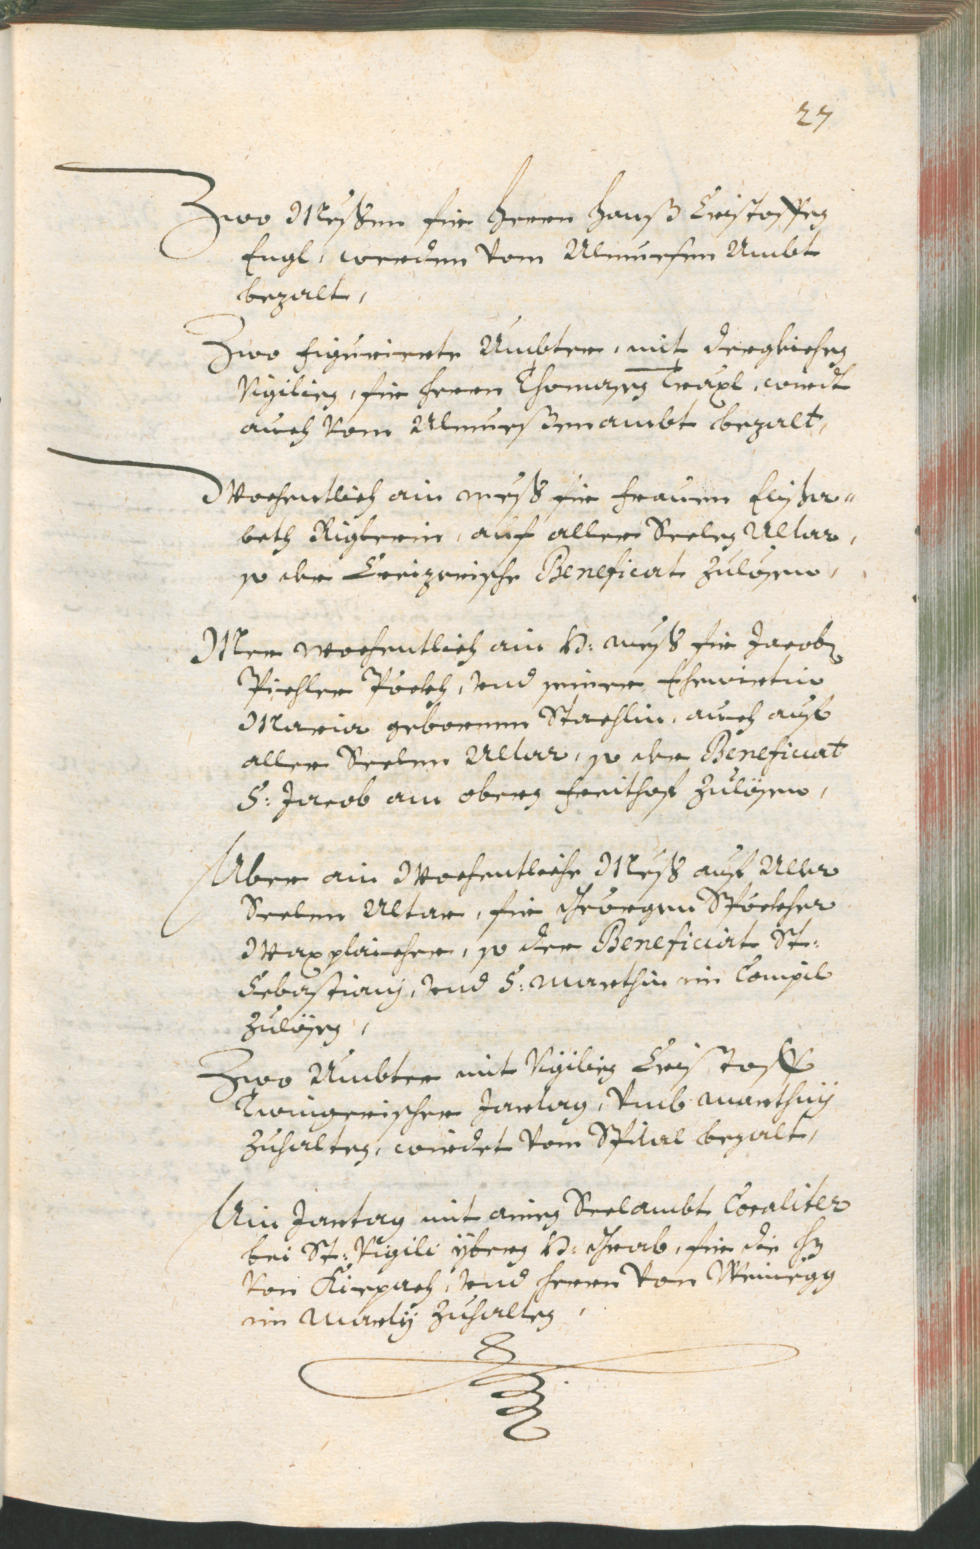 27
Zwo Messen für Herrn Hanß Cristoffen
Engl, werden vom Almuesen Ambt
bezalt,
Zwo figurierte Ämbter, mit dergleichen
Vigilien, für Herrn Thomasen, wirdt
auch vom Almuessenambt bezalt,
Wochentlich ain mess für Frauen Elisa=
beth Riglerin, auf aller Seelen Altar,
so der Creizerische Beneficiat zulösen,
Mer wochentlich ain H: mess für Jacoben
Pichler Pöckh, und seiner Ehewirtin
Maria gebornen Stachlin, auch auf
aller Seelen Altar, so der Beneficiat
S: Jacob am obern Freithof zulösen,
Aber ain Wochentliche Mess auf Aller
Seelen Altar, für Georgen
so der Beneficiat St:
Sebastiani, und S: Marthin im
zulösen,
Zwo Ämbter mit Vigilien Cristoff
Zwingerischer Jartag, umb Marthiny
zuhalten, wirdet vom Spital bezalt,
Ain Jartag mit ainen Seelambt Coraliter
bei St: Vigili ybern H: Grab, für die
von Kirpach, und Herrn von Weinegg
im Marty zuhalten,